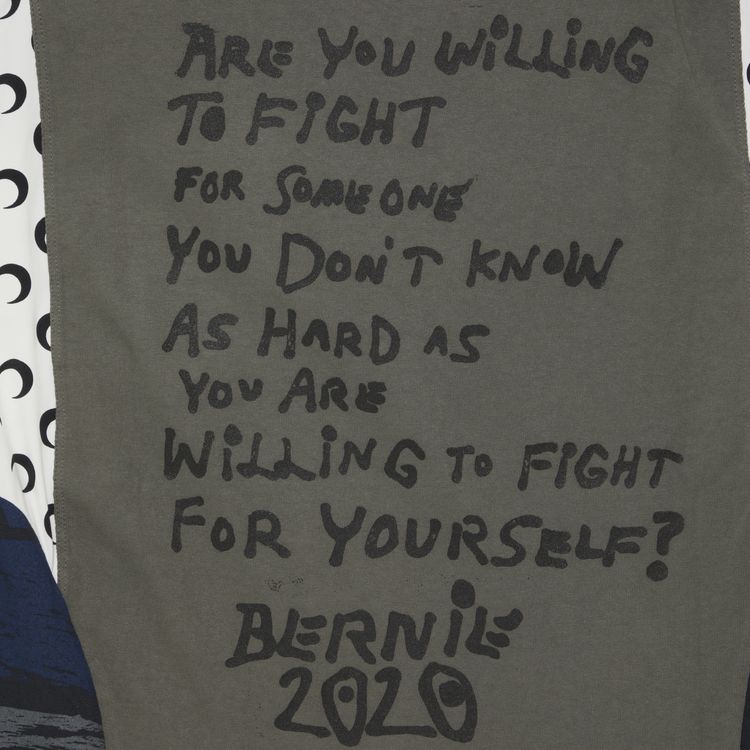 ARE YOU WiLLiNG
TO FiGHT
FOR SOMEONE
YOU DON'T KNOW
AS HARD AS
YOU ARE
WiLLiNG TO FiGHT
FOR YOURSELF?
BERNiE
2020